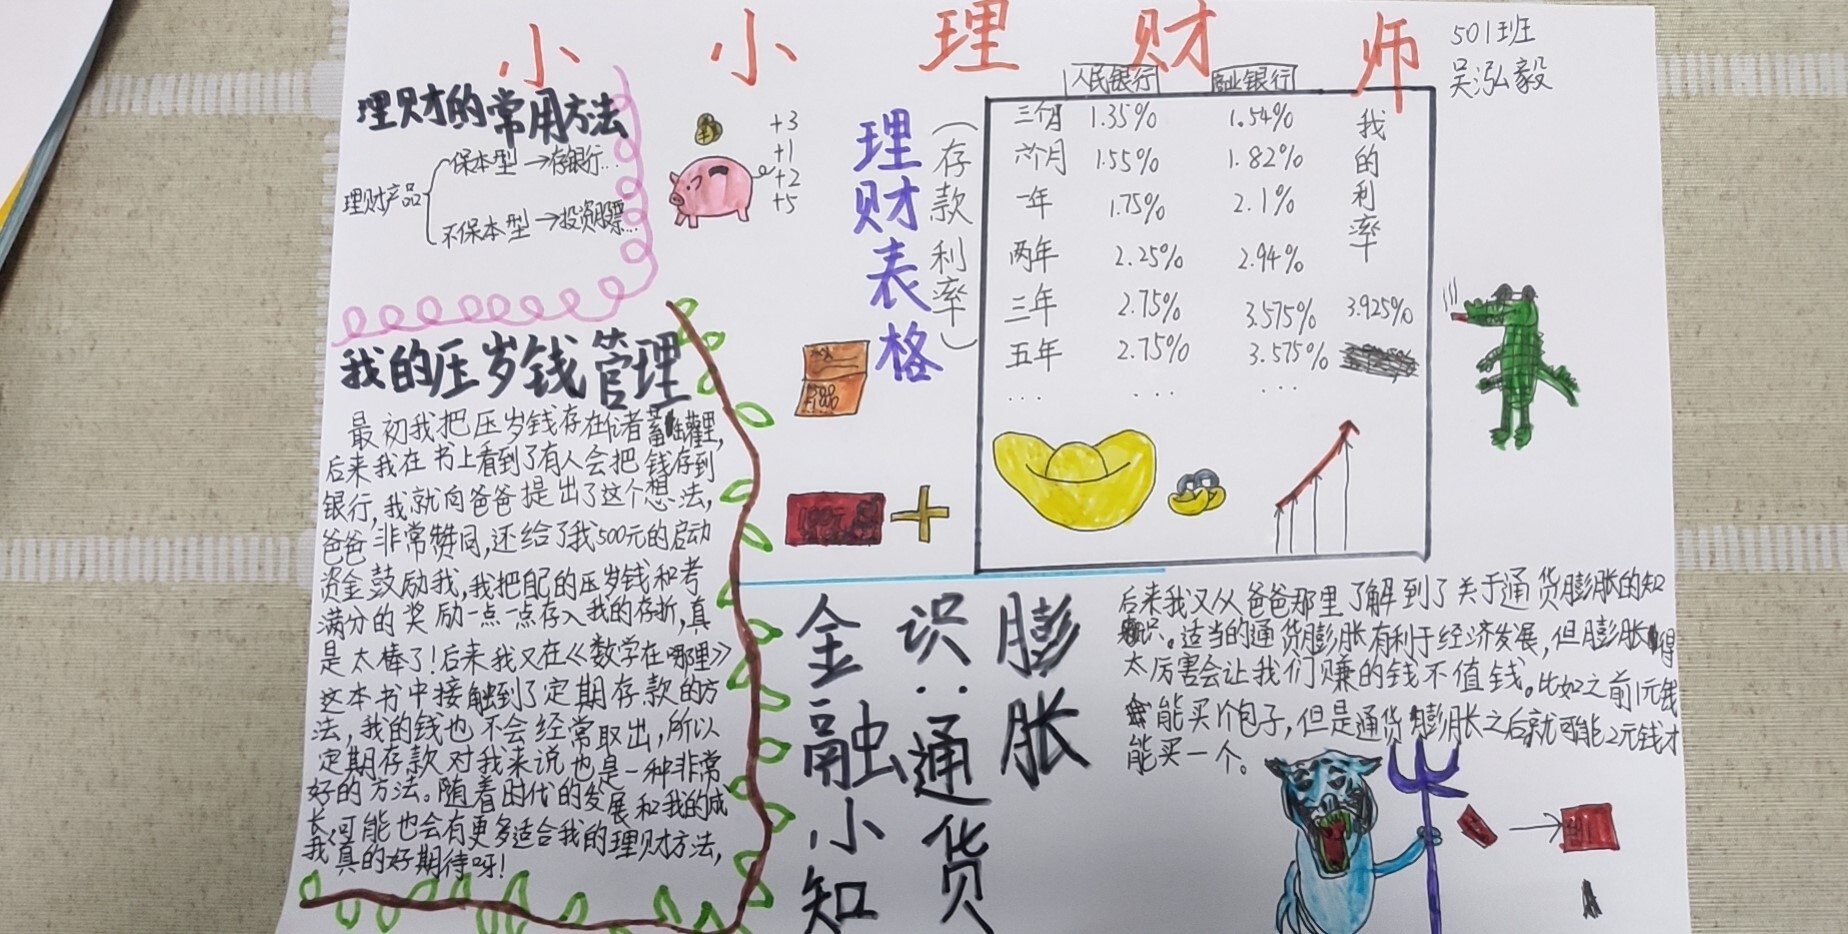 小小理财师
501班
吴泓毅
理财的常用方法
理财产品
保本型→存银行...
不保本型→投资股票...
+3
+1
+2
+5
理财表格
(存款利率)
人民银行 商业银行
三个月 1.35% 1.54%
六个月 1.55% 1.82%
一年 1.75% 2.1%
两年 2.25% 2.94%
三年 2.75% 3.575% 3.925%
五年 2.75% 3.575%
... ... ...
我的利率
我的压岁钱管理
最初我把压岁钱存在储蓄罐里,
后来我在书上看到了有人会把钱存到
银行,我就向爸爸提出了这个想法,
爸爸非常赞同,还给了我500元的启动
资金鼓励我,我把自己的压岁钱和考
满分的奖励一点一点存入我的存折,真
是太棒了!后来我又在《数学在哪里》
这本书中接触到了定期存款的方
法,我的钱也不会经常取出,所以
定期存款对我来说也是一种非常
好的方法。随着时代的发展和我的成
长,可能也会有更多适合我的理财方法,
我真的好期待呀!
100
金融小知识:通货膨胀
后来我又从爸爸那里了解到了关于通货膨胀的知
识。适当的通货膨胀有利于经济发展,但膨胀得
太厉害会让我们赚的钱不值钱。比如之前1元钱
能买1个包子,但是通货膨胀之后就可能2元钱才
能买一个。